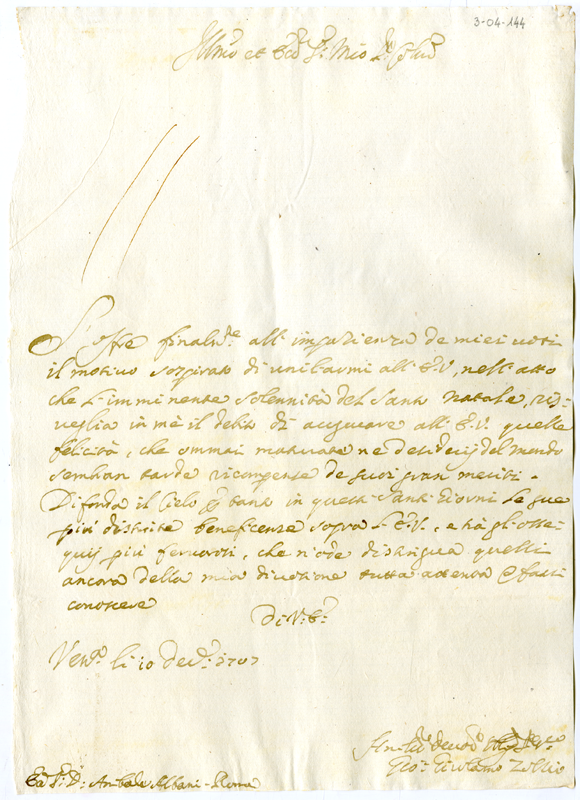 3-04-144
Illmo et Ecc. Sr. Mio
S'offre finalmte. all'impazienza de miei voti
il motivo sospirato di umiliarmi all'E.V., nell'atto
che l'imminente solennità del Santo Natale, ris-
veglia in mè il debito di augurare all'E.V. quelle
felicità, che ommai maturate ne desiderij del mondo
sembran tarde ricompense de suoi gran meriti.
Difonda il Cielo p tanto in questi Santi Giorni le sue
più distinte beneficenze sopra l'E.V., e trà gli osse-
quij più fervorosi, che riceve distingua quelli
ancora della mia divotione tutta attenta
conoscere
Di V. E.
Vena. li 10 Decre. 1707
Gio: Girolamo Zollio
D. Anibale Albani - Roma